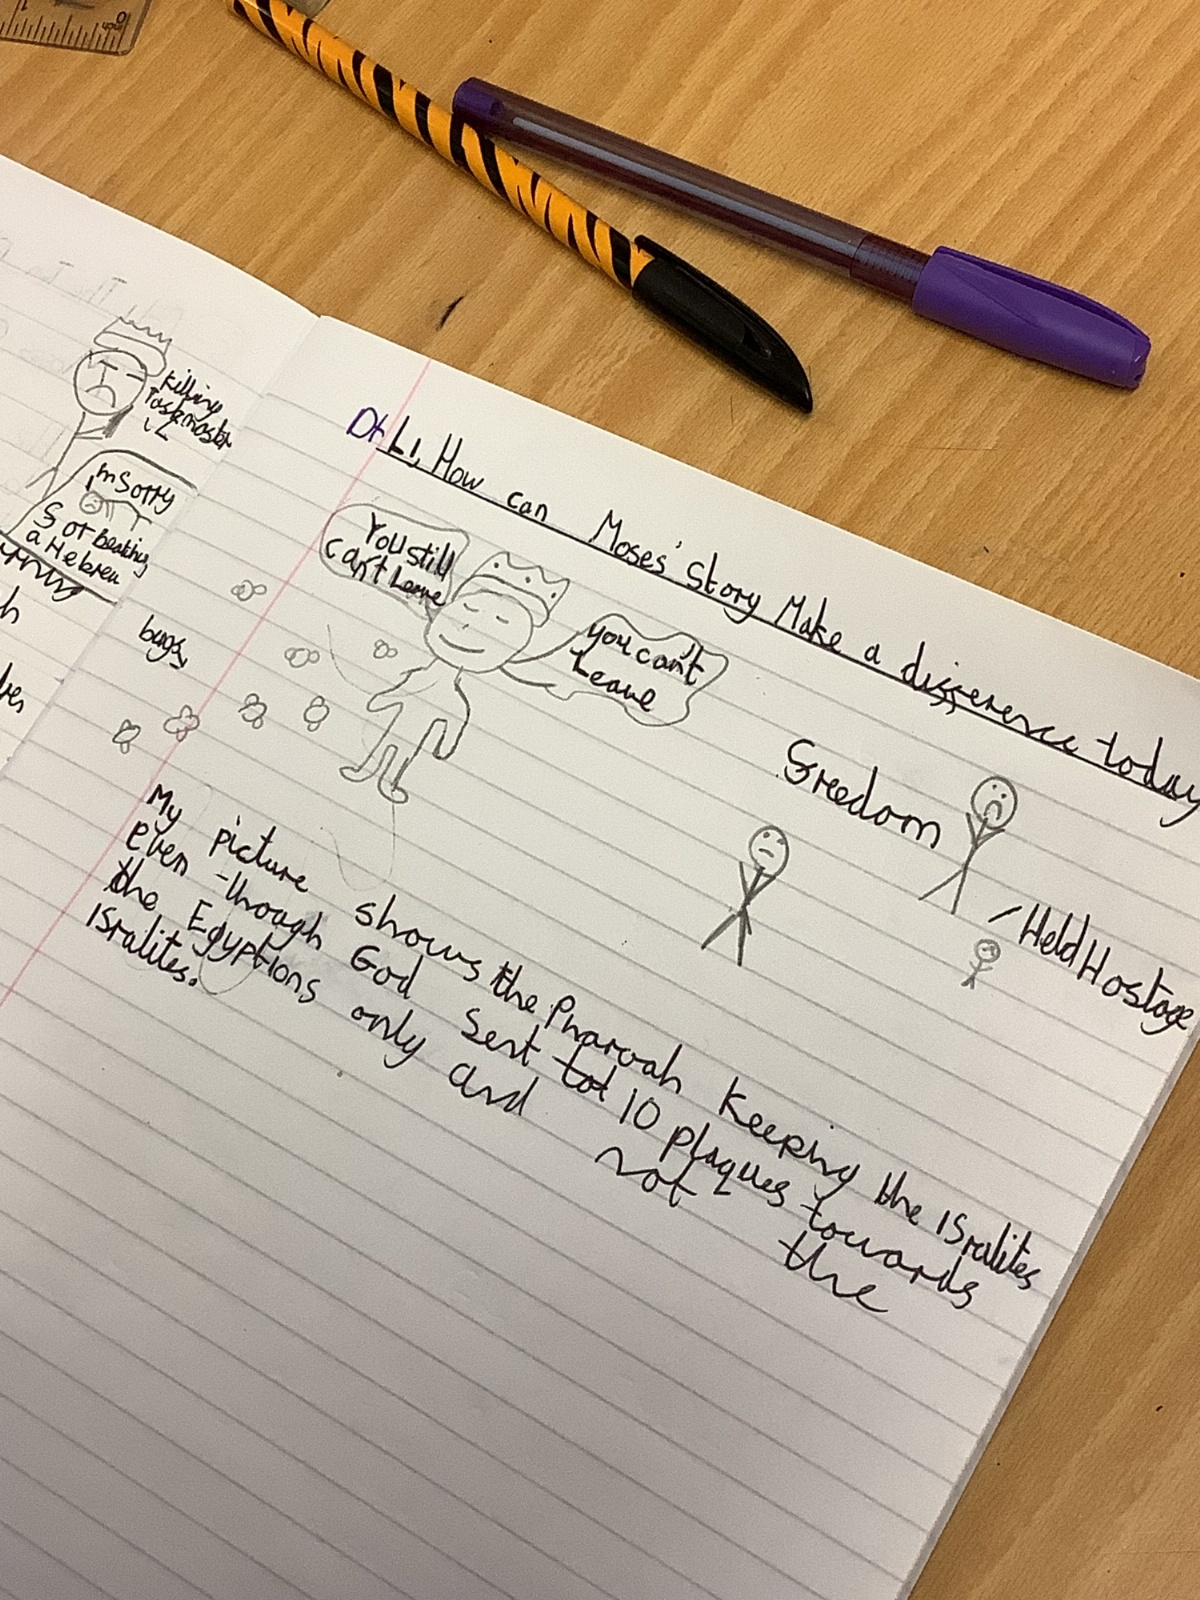 killing
Taskmaster
I'm Sorry
for beating
a Hebrew
Dt L1, How can Moses' Story Make a difference today
You still
can't Leave
you can't
Leave
bugs
freedom
Held Hostage
My picture shows the Pharoah Keeping the Isralites
even though God Sent tot 10 plaques towards
the Egyptions only and not the
Isralites.